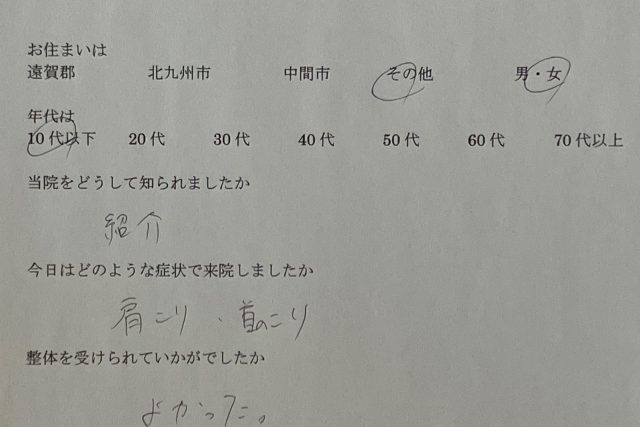 お住まいは
遠賀郡 北九州市 中間市 その他 男・女
年代は
10代以下 20代 30代 40代 50代 60代 70代以上
当院をどうして知られましたか
紹介
今日はどのような症状で来院しましたか
肩こり、首のこり
整体を受けられていかがでしたか
よかった。